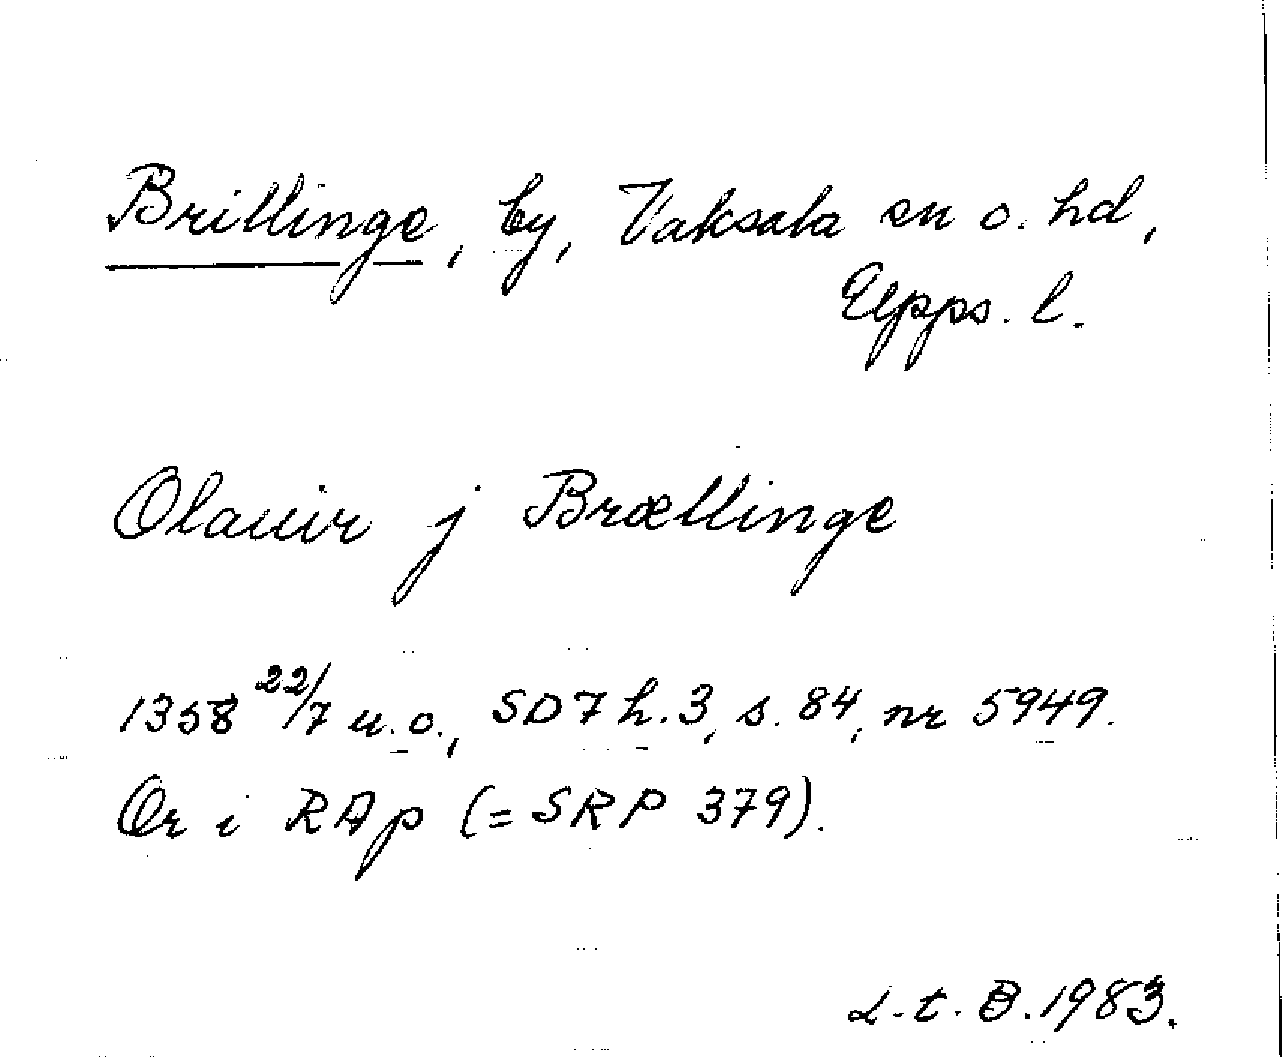 Brillinge, by, Vaksala sn o. hd,
Upps. l.
Olauir j Brællinge
1358 22/7 u.o., SD 7 h. 3, s. 84, nr 5949.
Or i RAp (= SRP 379).
L.t.B. 1983.